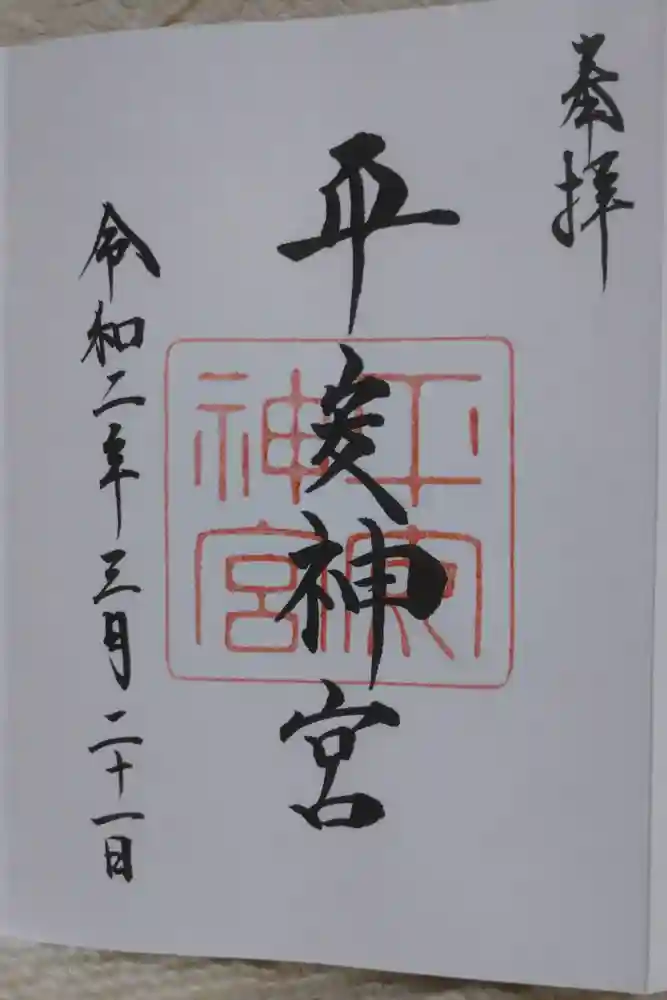 奉拝
平安神宮
平安
神宮
令和二年三月二十一日